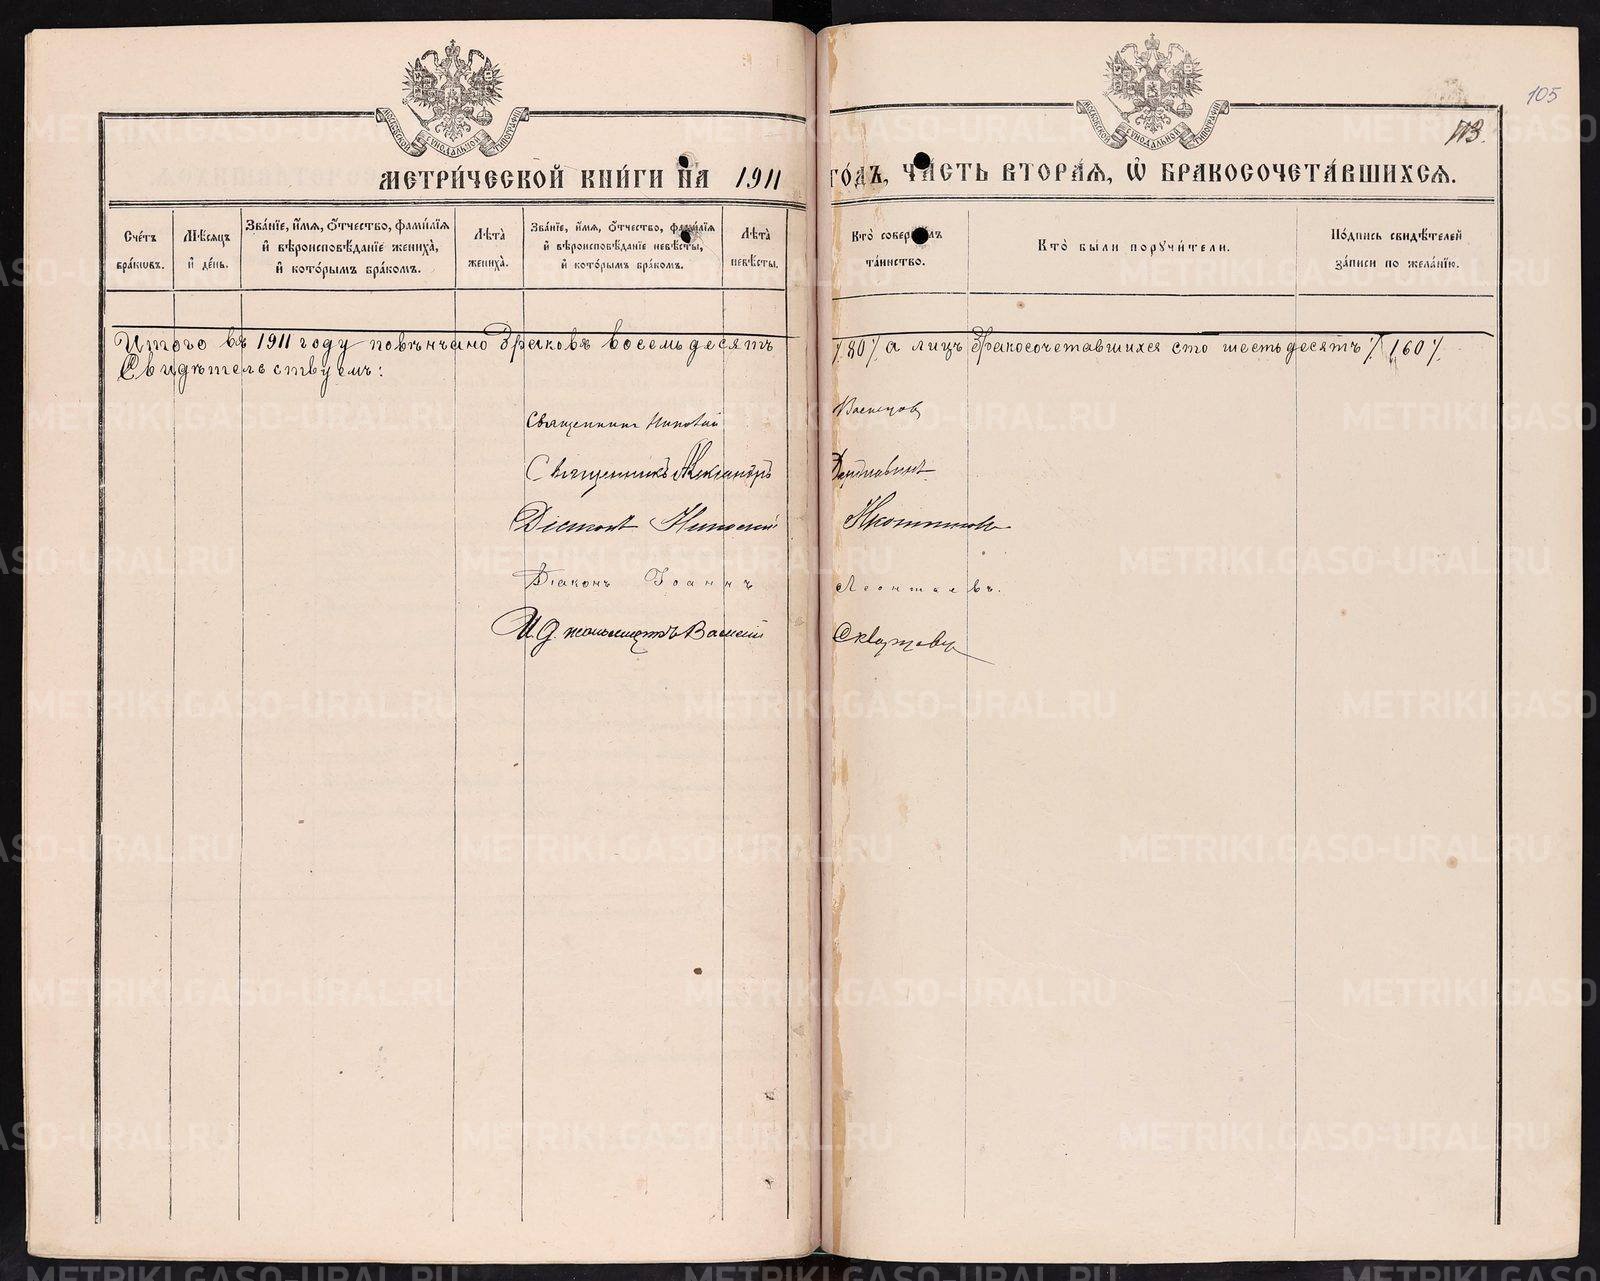 105
113.
МОСКОВСКОЙ СѴНОДАЛЬНОЙ ТИПОГРАФІИ
МОСКОВСКОЙ СѴНОДАЛЬНОЙ ТИПОГРАФІИ
МЕТРИ́ЧЕСКОЙ КНИ́ГИ НА 1911 ГО́ДЪ, ЧА́СТЬ ВТОРА́Ѧ, Ѡ БРАКОСОЧЕТА́ВШИХСѦ.
Сче́тъ бра́кѡвъ.
Мѣ́сѧцъ и҆ де́нь.
Зва́нїе, и҆́мѧ, ѻ҆́тчество, фами́лїѧ и҆ вѣроисповѣ́данїе жениха̀, и҆ кото́рымъ бра́комъ.
Лѣ́та жениха̀.
Зва́нїе, и҆́мѧ, ѻ҆́тчество, фами́лїѧ и҆ вѣроисповѣ́данїе невѣ́сты, и҆ кото́рымъ бра́комъ.
Лѣ́та невѣ́сты.
Кто̀ соверша́лъ та́инство.
Кто̀ бы́ли поручи́тели.
По́дпись свидѣ́телей за́писи по жела́нїю.
Итого въ 1911 году повѣнчано браковъ восемьдесятъ /80/ а лицъ бракосочетавшихся сто шестьдесятъ /160/.
Свидѣтельствуемъ:
Священникъ
Священникъ Александръ
Діаконъ
Діаконъ Іоаннъ Леонтьевъ.
И. д. псаломщика Василій Скворцовъ
METRIKI.GASO-URAL.RU